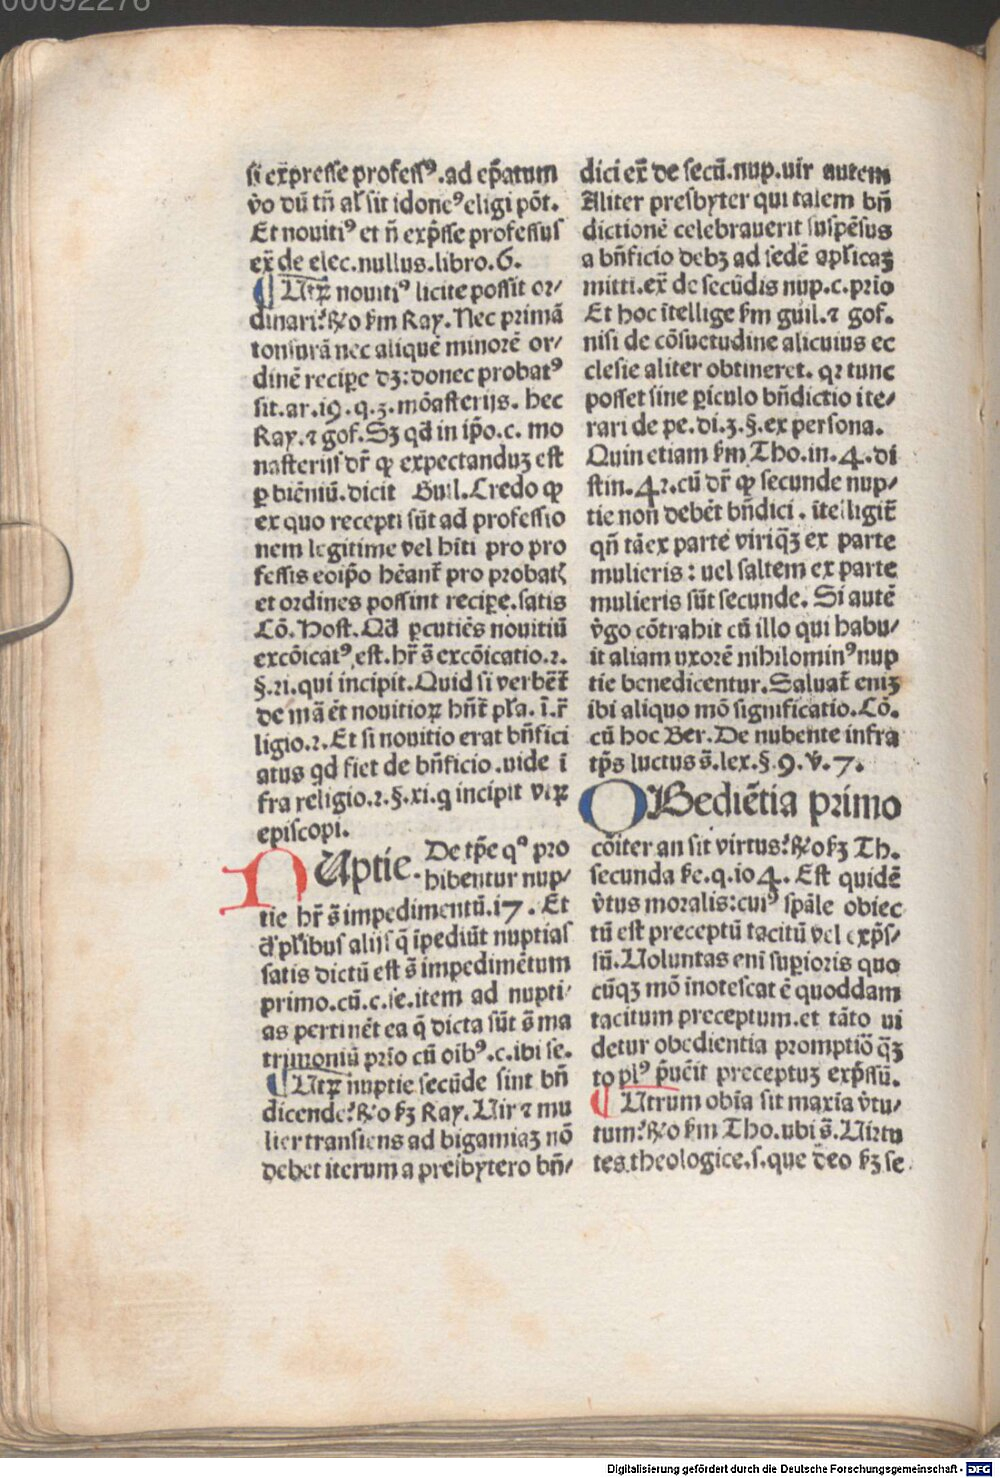 00092276
si exp̄resse professꝰ.ad ep̄atum
v̊o dū tn̄ al̓ sit idoneꝰ eligi pōt.
Et nouitiꝰ et n̄ exp̄sse professus
ex̄ de elec.nullus.libro.6.
¶ Utꝝ nouitiꝰ licite possit or⸗
dinari? ꝶo ẜm Ray. Nec primā
tonsurā nec aliquē minorē or⸗
dinē recipe dꝫ: donec probatꝰ
sit.ar.19.q.3.mōasterijs. hec
Ray.⁊ gof. Sꝫ qd̓ in ip̄o.c. mo
nasterijs dr̄ ꝙ expectanduꝫ est
ꝑ biēniū.dicit Guil. Credo ꝙ
ex quo recepti sūt ad professio
nem legitime vel hīti pro pro
fessis eoip̄o hēant̄ pro probatꝭ
et ordines possint recipe.satis
Cō. Host. Qd̓ ꝑcutiēs nouitiū
excōicatꝰ est. hr̄ s̄ excōicatio.2.
§.21.qui incipit. Quid si verbēt̄
de mā ēt nouitioꝝ hn̄t̄ pl̓a. ī.r̄
ligio.2. Et si nouitio erat bn̄fici
atus qd fiet de bn̄ficio.uide ī
fra religio.2.§.xi.q incipit vtꝝ
episcopi.
NUptie. De tp̄e qº pro
hibentur nup⸗
tie hr̄ s̄ impedimentū.17. Et
d̓ pl̓ibus alijs q̄ īpediūt nuptias
satis dictū est s̄ impedimētum
primo.cū.c.se.item ad nupti⸗
as pertinēt ea q̄ dicta sūt s̄ ma
trimoniū prio cū oibꝰ.c.ibi se.
¶ Utꝝ nuptie secūde sint bn̄
dicende? ꝶo ẜꝫ Ray. Uir ⁊ mu
lier transiens ad bigamiaꝫ nō
debet iterum a presbytero bn̄⸗
dici ex̄ de secū.nup.uir autem
Aliter presbyter qui talem bn̄
dictionē celebrauerit suspēsus
a bn̄ficio debꝫ ad sedē apl̓icaꝫ
mitti.ex̄ de secūdis nup.c.prio
Et hoc ītellige ẜm guil.⁊ gof.
nisi de cōsuetudine alicuius ec
clesie aliter obtineret. qꝛ tunc
posset sine piculo bn̄dictio ite⸗
rari de pe.di.3.§.ex persona.
Quin etiam ẜm Tho.in.4.di
stin.42.cū dr̄ ꝙ secunde nup⸗
tie non debēt bn̄dici. ītelligit̄
qn̄ tā ex parte viri qꝫ ex parte
mulieris: uel saltem ex parte
mulieris sūt secunde. Si autē
v̊go cōtrahit cū illo qui habu⸗
it aliam uxorē nihilominꝰ nup
tie benedicentur. Saluat̄ eniꝫ
ibi aliquo mō significatio. Cō.
cū hoc Ber. De nubente infra
tp̄s luctus s̄.lex.§.9.v̊.7.
OBediētia primo
cōiter an sit virtus? ꝶo ẜꝫ Th.
secunda se.q.104. Est quidē
v̊tus moralis: cuiꝰ spāle obiec
tū est preceptū tacitū vel exp̄s⸗
sū. Uoluntas enī supioris quo
cūqꝫ mō inotescat ē quoddam
tacitum preceptum.et tāto ui
detur obedientia promptiō qꝫ
to plꝰ p̄uēit preceptuꝫ exp̄ssū.
¶ Utrum obīa sit maxīa v̊tu⸗
tum? ꝶo ẜm Tho.ubi s̄. Uirtu
tes theologice.s.que deo ẜꝫ se
Digitalisierung gefördert durch die Deutsche Forschungsgemeinschaft - DFG